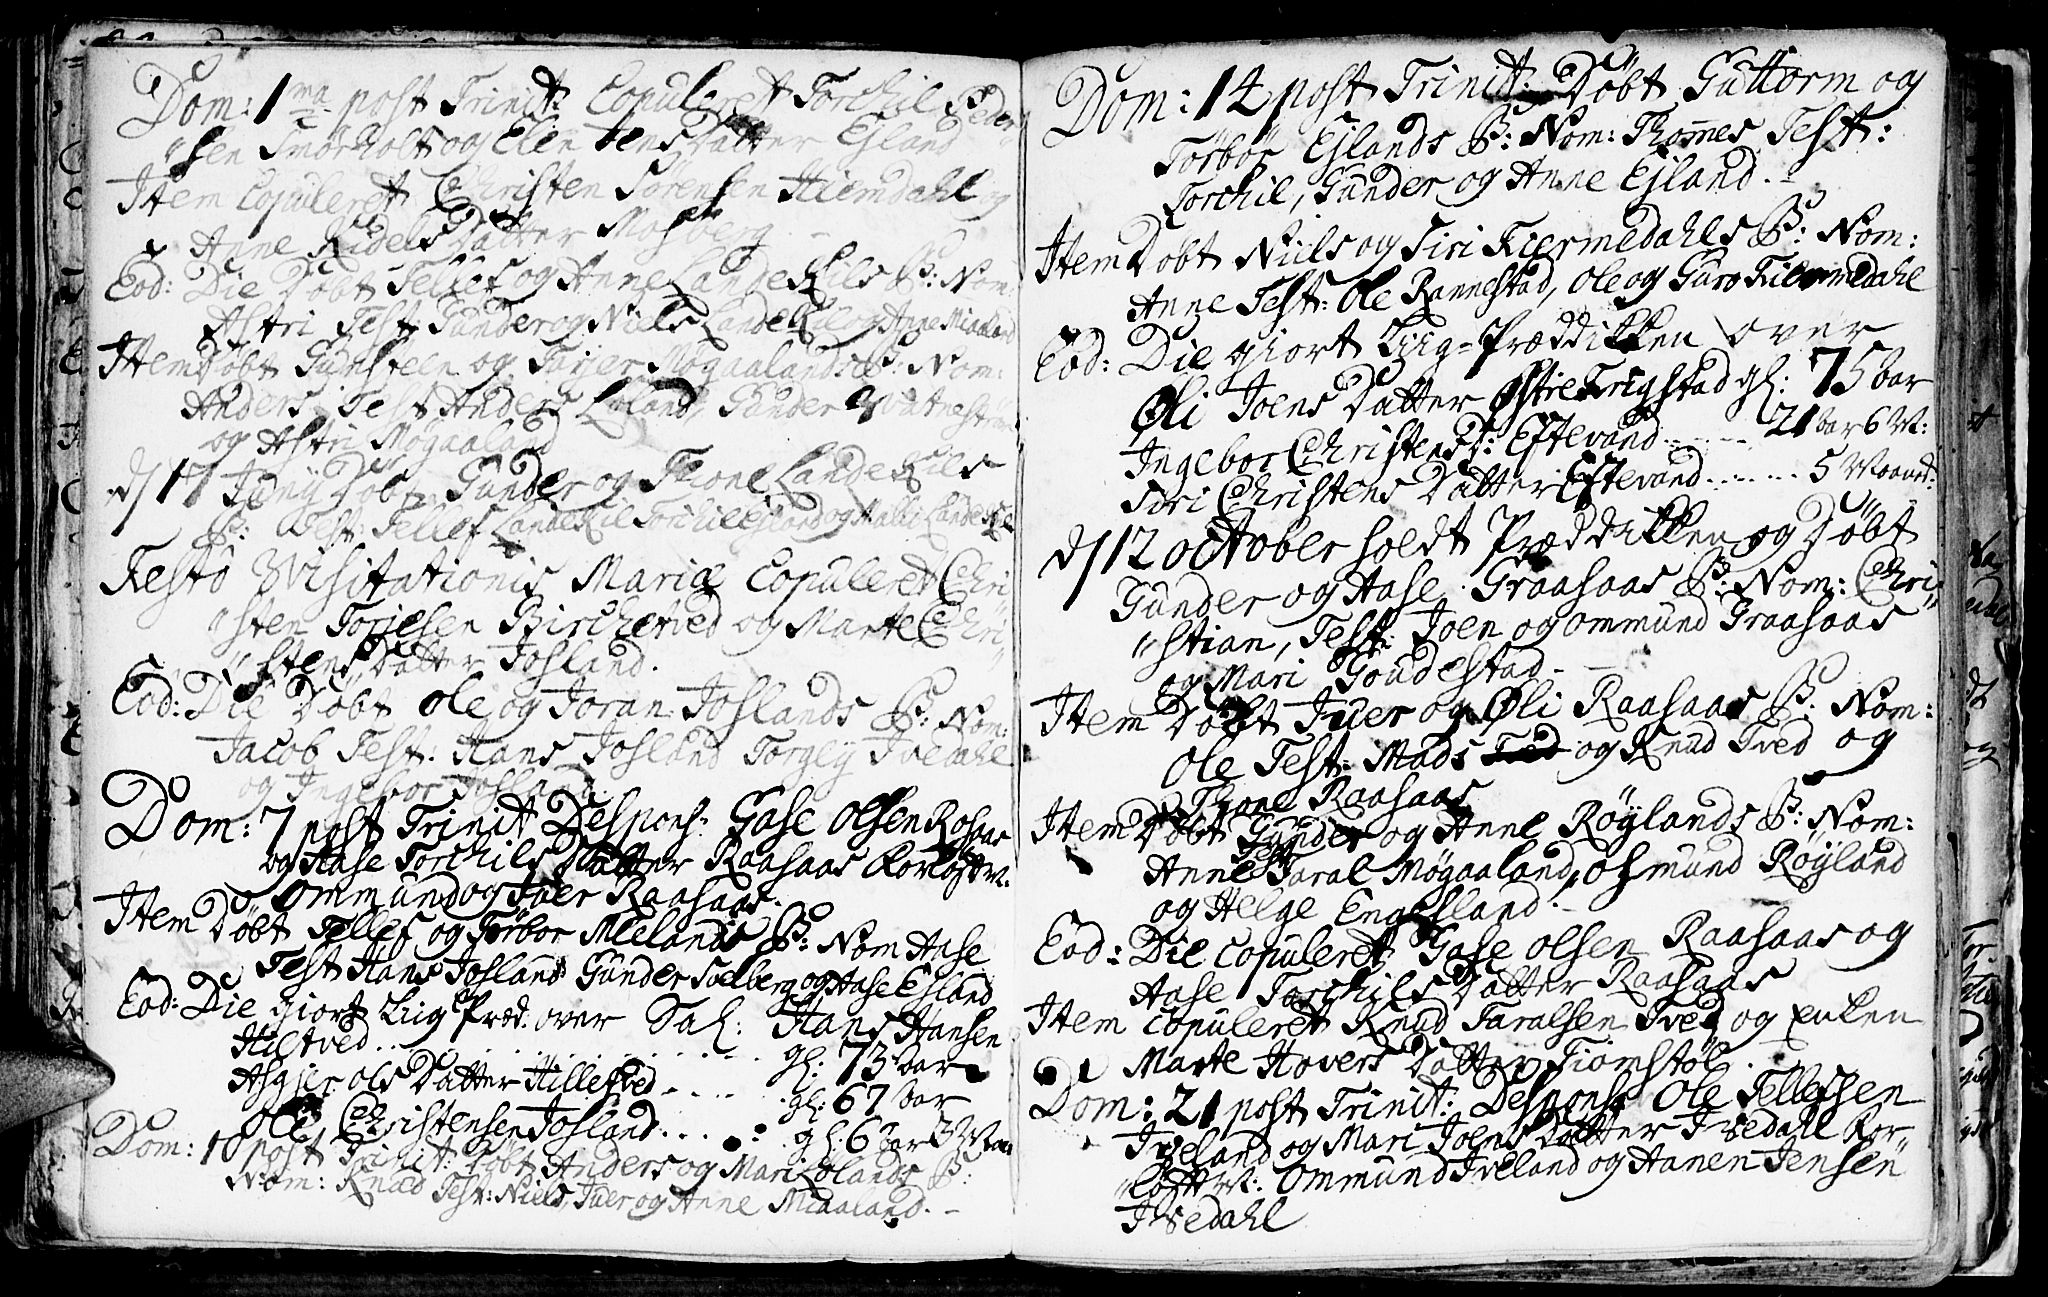 Dom: 1ma post Trinit: Copuleret Torchil Peder
"sen Smørholt og Elen Jens Datter Ejland
Item Copuleret Christen Sørensen Kiemdahl og
Anne Kidels Datter Mosberg
Eod: Die Døbt Tellef og Anne Landekils B: Nom:
Astri Test: Gunder og Niels Landekil og Anne Miaaland
Item Døbt Gunsteen og Tarjer Møgaalands B: Nom:
Anders Test Anders Løland, Gunder
og Astri Møgaaland
d 17 Juny Døbt Gunder og Thone Landekils
B: Test: Tellef Landekil Torchil Ejland og Malli Landekil
Festo Visitationis Mariæ Copuleret Chri
"sten Torjesen Birchetved og Marte Chri
"stens Datter Josland.
Eod: Die Døbt Ole og Joran Joslands B: Nom:
Jacob Test: Hans Josland Torgey Ivedahl
og Ingebor Josland
Dom: 7 post Trinit Despons: Gase Olsen Rosaas
og Aase Torchils Datter Raasaas
Ommund og Iver Raasaas.
Item Døbt Tellef og Tørbor Mielands B: Nom Aase
Test Hans Josland Gunder Solberg og Aase Ejland
Eod: Die giort Liig Præd: over Sal: Hans Hansen
Hiltved . . . gl: 73 Aar
Asgier Ols Datter Hillestved . . . gl: 67 Aar
Ole Christensen Josland . . . gl: 6 Aar 3
Dom: 10 post Trinit: Døbt Anders og Mari Lølands B:
Nom: Knud Test: Niels, Iver og Anne Miaaland. -
Dom: 14 post Trinit: Døbt Guttorm og
Tørbor Ejlands B: Nom: Thomes Test:
Torchil, Gunder og Anne Ejland. -
Item Døbt Niels og Siri Kiermedahls B: Nom:
Anne Test: Ole Rannestad, Ole og Guro Kiermedahl
Eod: Die giort Liig-Præddikken over
Øli Joens Datter Østre Trigstad gl: 75 Aar
Ingebor Christens D: Eftevand . . . 21 Aar 6 M:
Siri Christens Datter Eftevand . . . 5 Maaned:
d 12 October holdt Præddikken og Døbt
Gunder og Aase Graasaas B: Nom: Chri
"stian, Test: Joen og Ommund Graasaas
og Mari Goudestad -
Item Døbt Iver og Øli Raasaas B: Nom:
Ole Test: Mads og Knud Tved og
Thone Raasaas
Item Døbt Gunder og Anne Røylands B: Nom:
Anne Test Taral Møgaaland, Osmund Røyland
og Helge Engesland. -
Eod: Die copuleret Gase Olsen Raasaas og
Aase Torchils Datter Raasaas
Item copuleret Knud Taralsen Tved og Enken
Marte Hovers Datter Fiomstøl.
Dom: 21 post Trinit: Despons: Ole Tellefsen
Iveland og Mari Joens Datter Ivedahl
Ommund Iveland og Aanen Jensen
Ivedahl